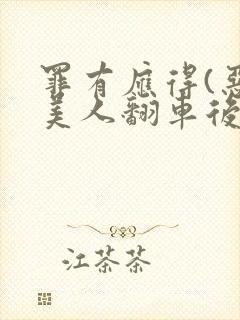 罪有應得(惡
美人翻車後
江茶茶